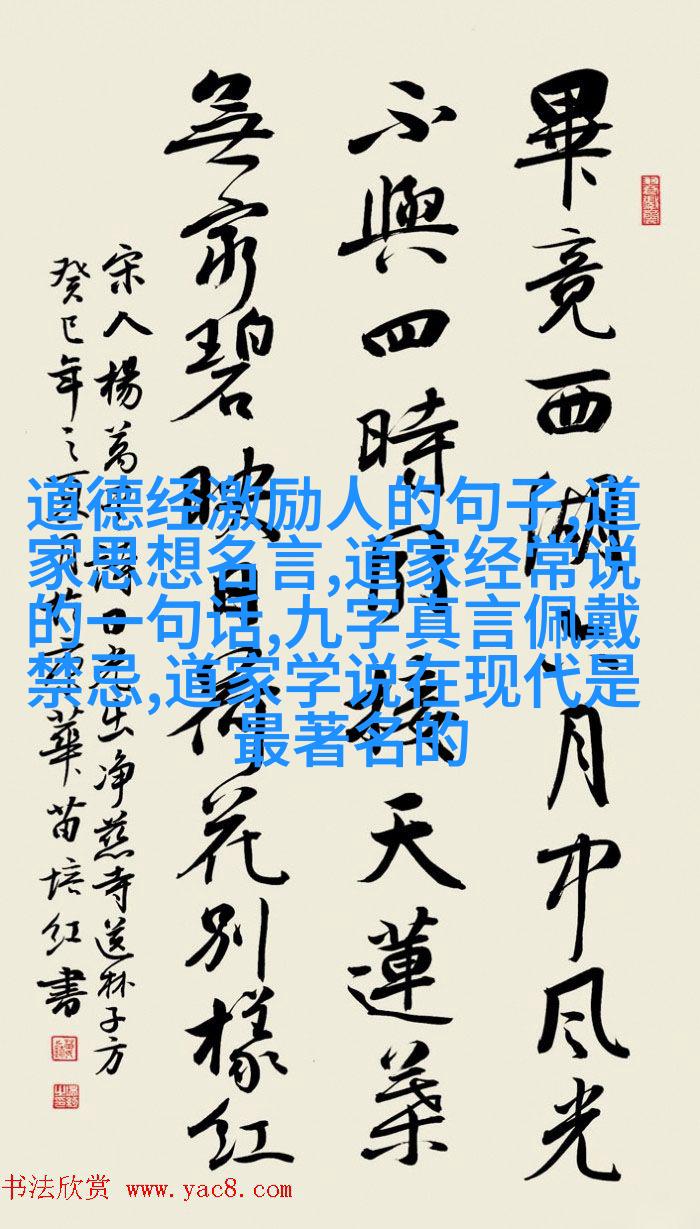 畢竟西湖六月中风光
不與四時同接天蓮葉
無窮碧映日荷花別樣红
宋人楊萬里詩曉出净慈寺送林子方
癸巳年之夏月於華苗培红書
道德经激励人的句子,道
家思想名言,道家经常说
的一句话,九字真言佩戴
禁忌,道家学说在现代是
最著名的
书法欣赏 www.yac8.com